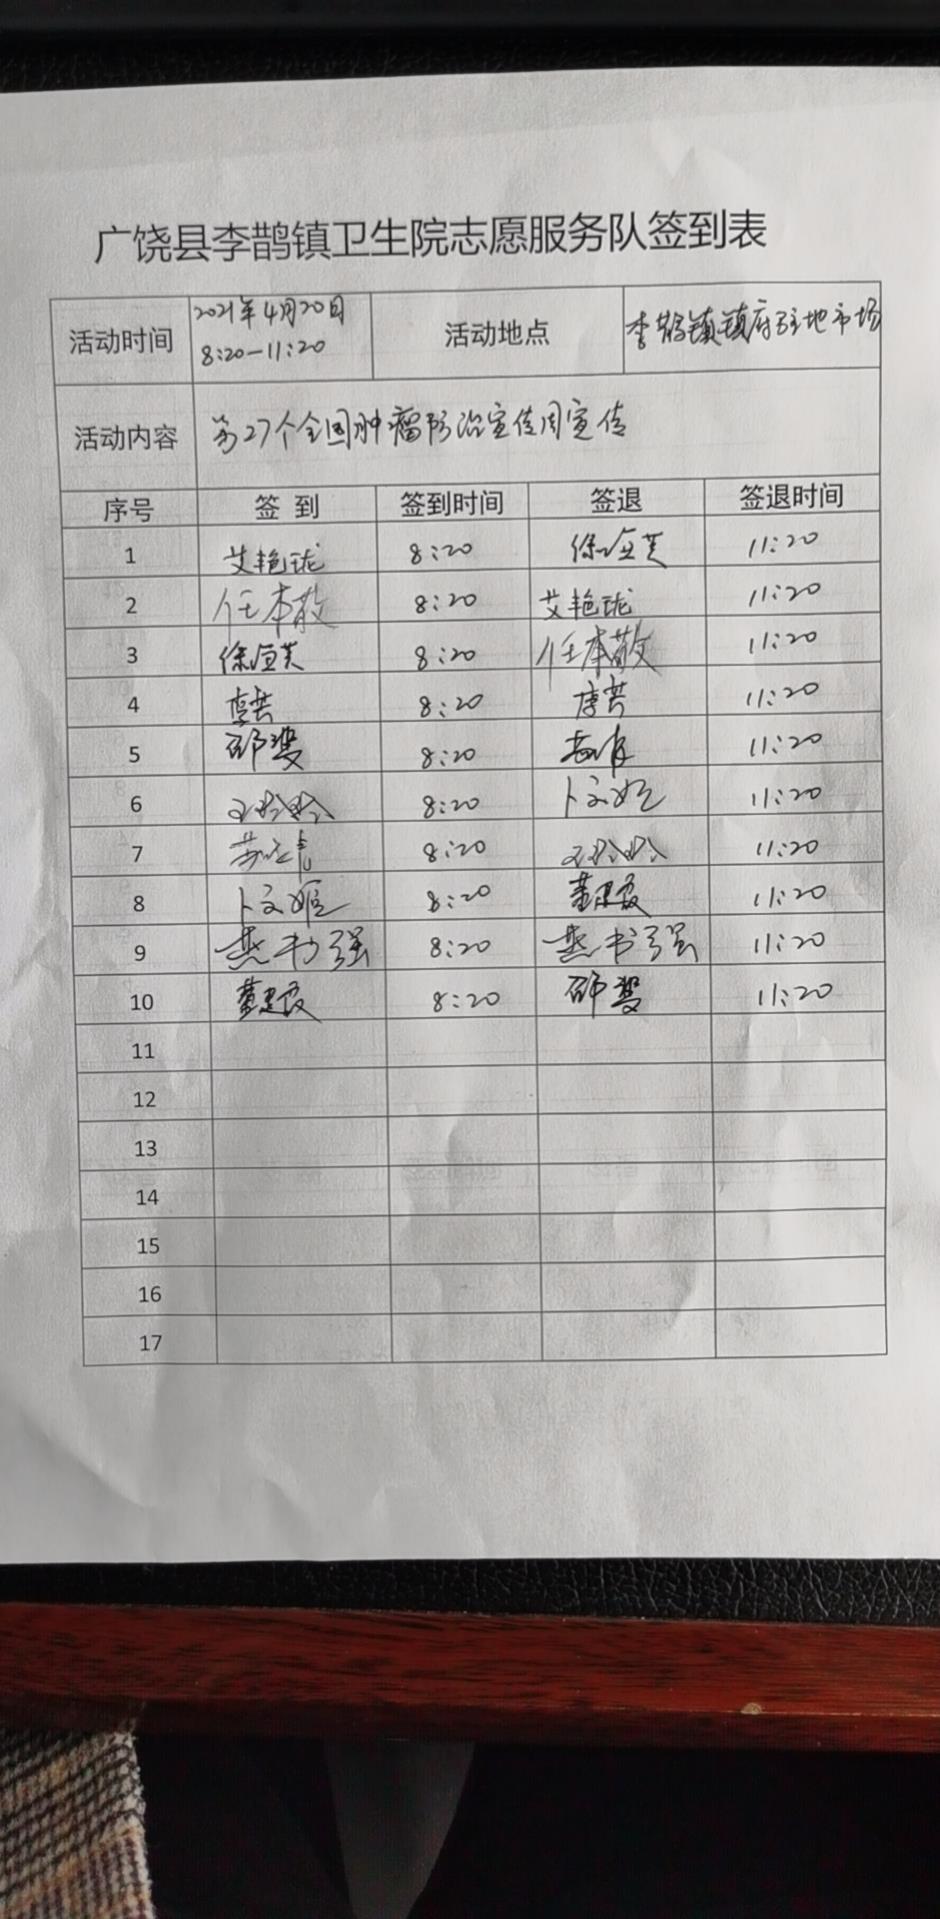 广饶县李鹊镇卫生院志愿服务队签到表
活动时间 2021年4月20日 8:20-11:20 活动地点 李鹊镇镇府驻地市场
活动内容 第27个全国肿瘤防治宣传周宣传
序号 签到 签到时间 签退 签退时间
1 艾艳珑 8:20 11:20
2 任本敬 8:20 艾艳珑 11:20
3 8:20 任本敬 11:20
4 8:20 11:20
5 8:20 11:20
6 王玲玲 8:20 卜文姬 11:20
7 8:20 王玲玲 11:20
8 卜文姬 8:20 董建霞 11:20
9 燕书强 8:20 燕书强 11:20
10 董建霞 8:20 11:20
11
12
13
14
15
16
17